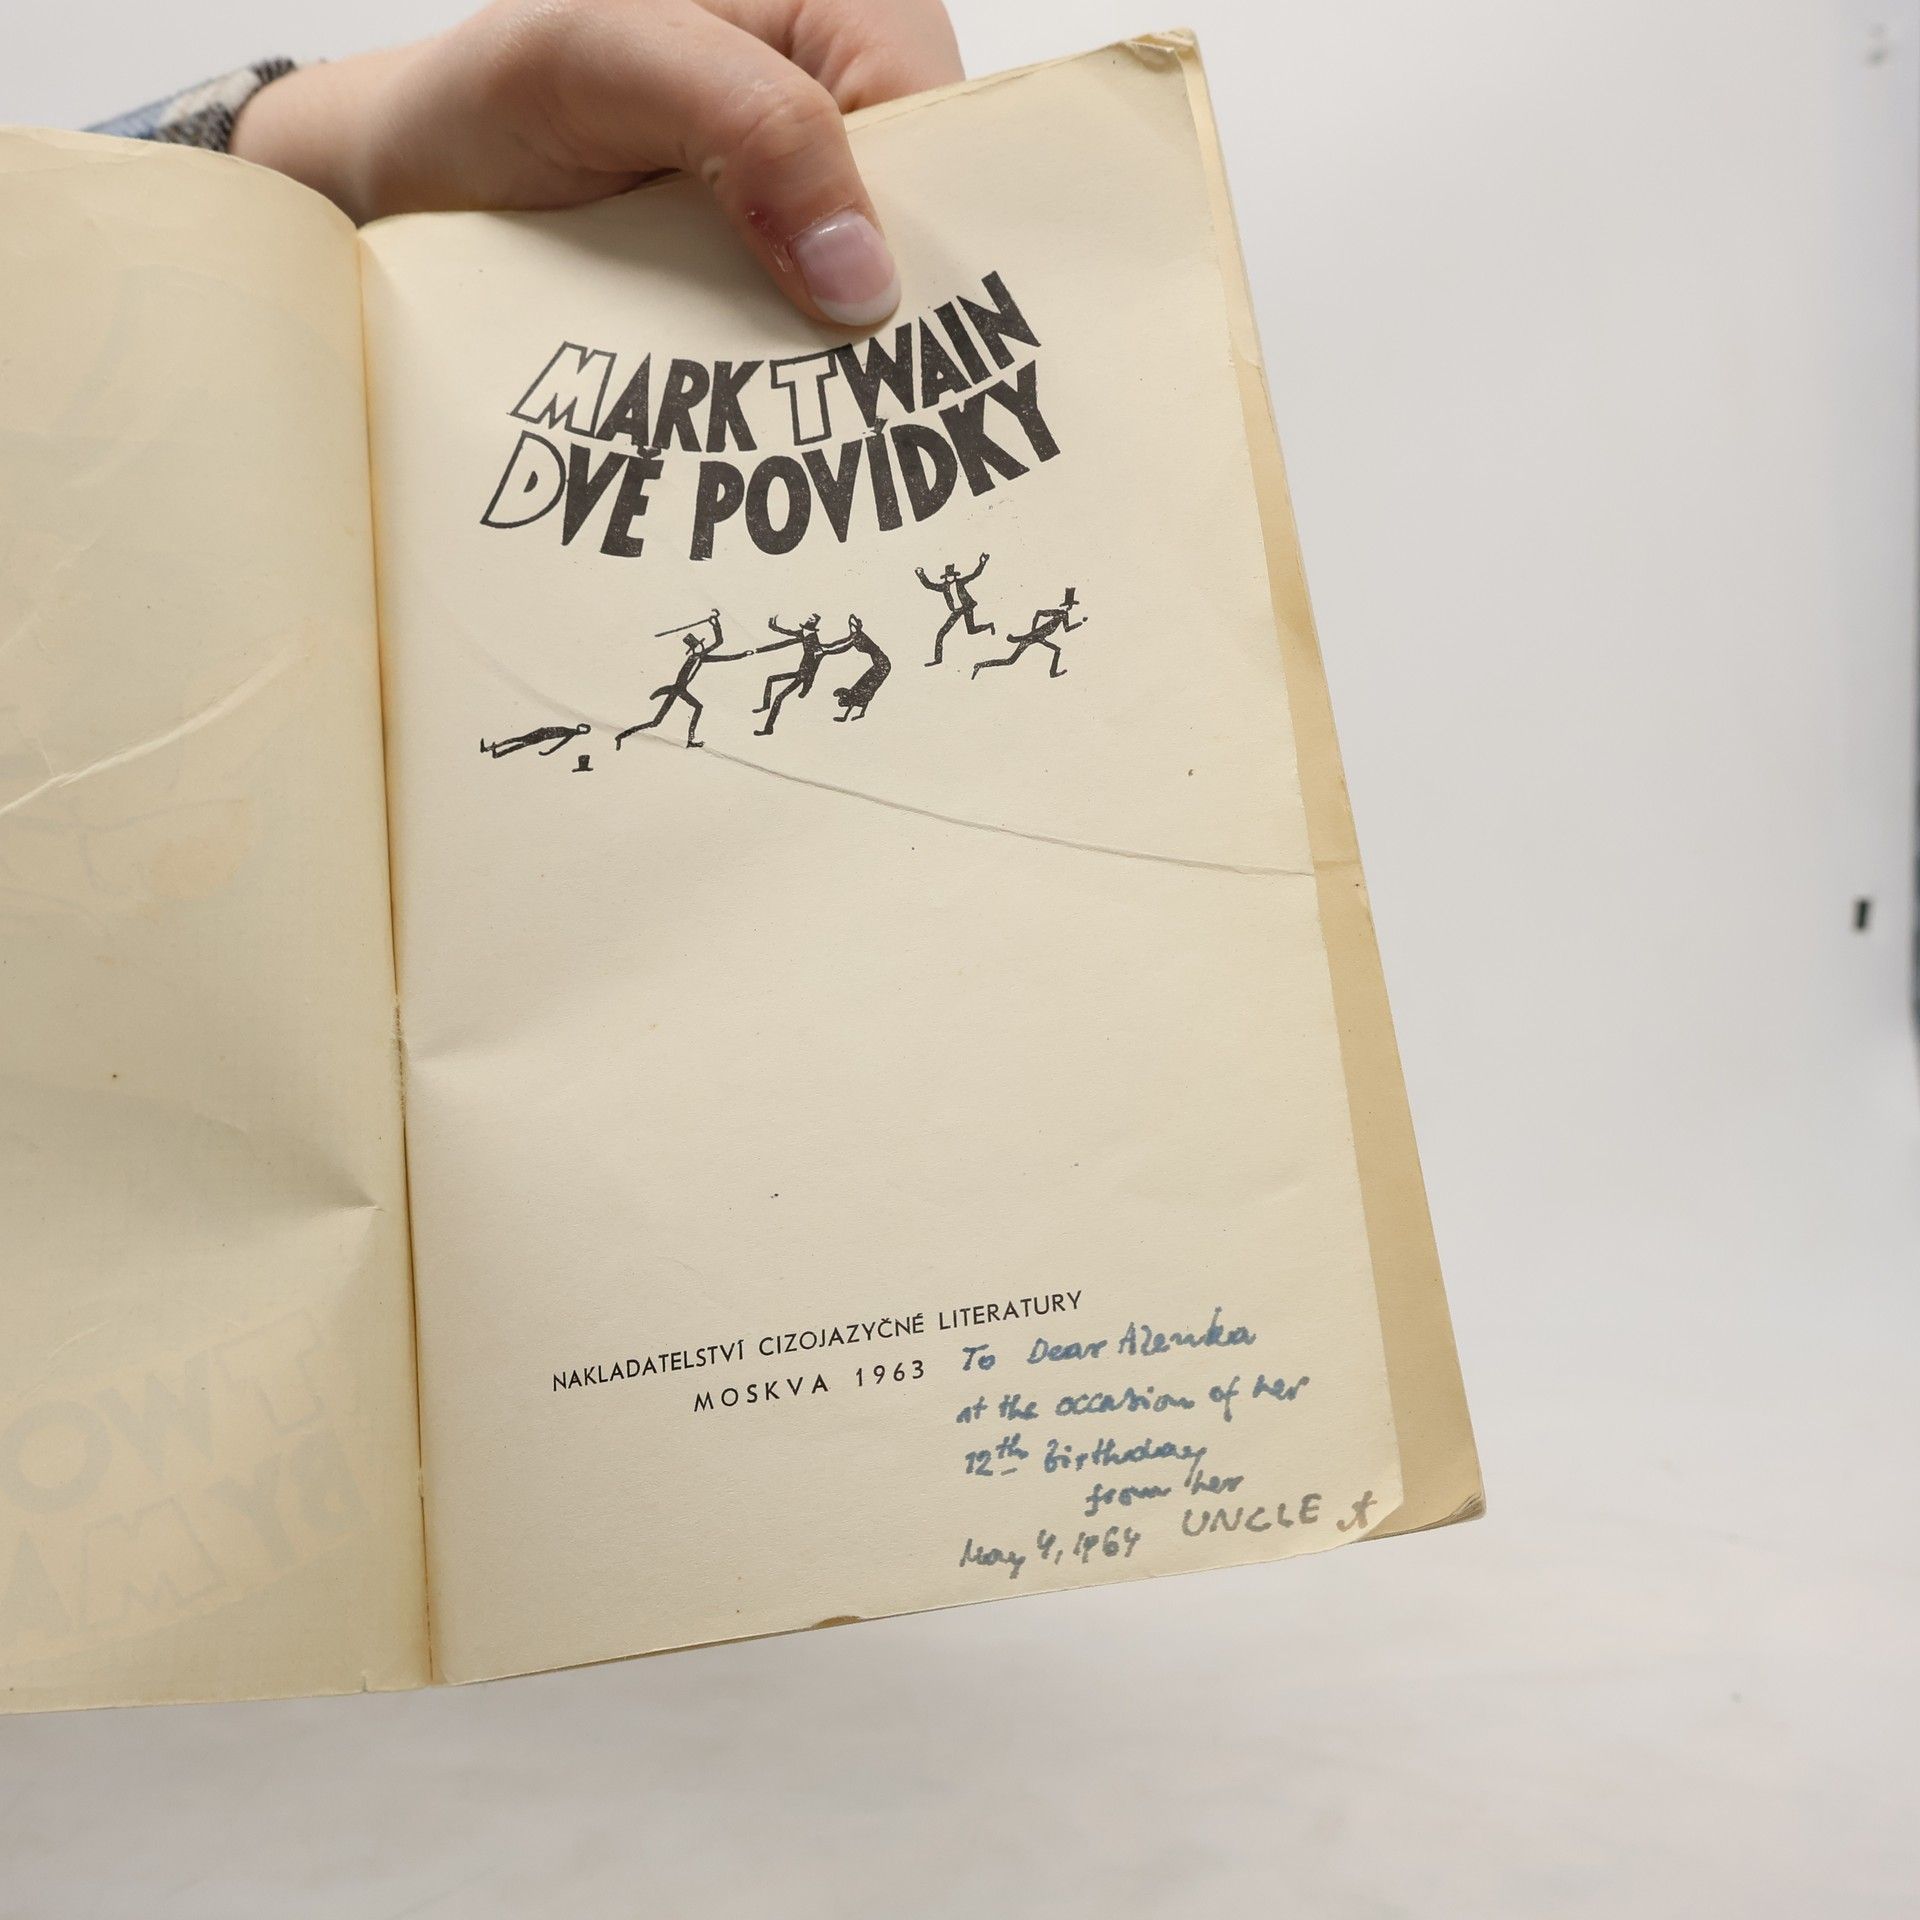 MARK TWAIN
DVĚ POVÍDKY
NAKLADATELSTVÍ CIZOJAZYČNÉ LITERATURY
MOSKVA 1963
To Dear Alenka
at the occasion of her
12th birthday
from her
UNCLE
May 4, 1964